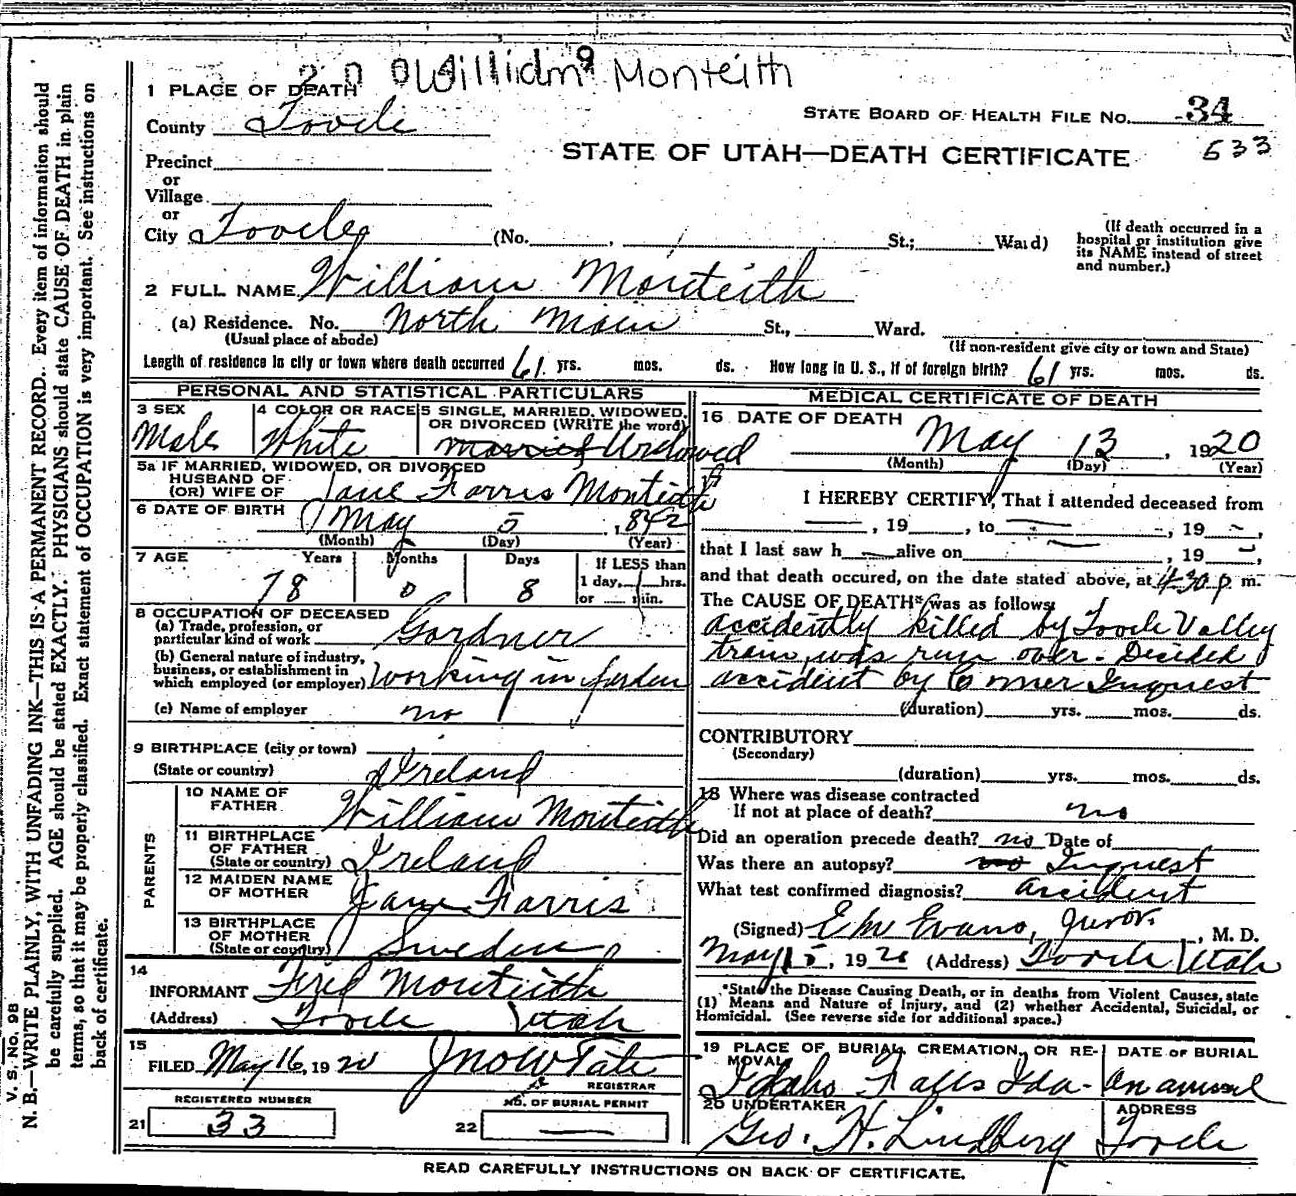 William Monteith
1 PLACE OF DEATH
STATE BOARD OF HEALTH FILE No. 34
County Tooele
STATE OF UTAH—DEATH CERTIFICATE 533
Precinct
or
Village
or
City Tooele (No. , St.; Ward)
(If death occurred in a hospital or institution give its NAME instead of street and number.)
2 FULL NAME William Monteith
(a) Residence. No. North Main St., Ward.
(Usual place of abode) (If non-resident give city or town and State)
Length of residence in city or town where death occurred 61 yrs. mos. ds. How long in U. S., if of foreign birth? 61 yrs. mos. ds.
PERSONAL AND STATISTICAL PARTICULARS
3 SEX
Male
4 COLOR OR RACE
White
5 SINGLE, MARRIED, WIDOWED,
OR DIVORCED (WRITE the word)
married Widowed
5a IF MARRIED, WIDOWED, OR DIVORCED
HUSBAND OF
(OR) WIFE OF Jane Farris Monteith
6 DATE OF BIRTH May 5, 1842
(Month) (Day) (Year)
7 AGE Years Months Days If LESS than
78 0 8 1 day, hrs.
or min.
8 OCCUPATION OF DECEASED
(a) Trade, profession, or
particular kind of work Gardner
(b) General nature of industry,
business, or establishment in
which employed (or employer) Working in garden
(c) Name of employer no
9 BIRTHPLACE (city or town)
(State or country) Ireland
PARENTS
10 NAME OF
FATHER William Monteith
11 BIRTHPLACE
OF FATHER
(State or country) Ireland
12 MAIDEN NAME
OF MOTHER Jane Farris
13 BIRTHPLACE
OF MOTHER
(State or country) Sweden
14
INFORMANT Fred Monteith
(Address) Tooele Utah
15
FILED May 16, 1920 Jno W Tate
REGISTRAR
REGISTERED NUMBER NO. OF BURIAL PERMIT
21 33 22
MEDICAL CERTIFICATE OF DEATH
16 DATE OF DEATH May 13, 1920
(Month) (Day) (Year)
17
I HEREBY CERTIFY, That I attended deceased from
, 19 , to , 19 ,
that I last saw h alive on , 19 ,
and that death occured, on the date stated above, at 4:30 p m.
The CAUSE OF DEATH* was as follows:
accidently killed by Tooele Valley
train, was run over. Decided
accident by Coroner Inquest
(duration) yrs. mos. ds.
CONTRIBUTORY
(Secondary)
(duration) yrs. mos. ds.
18 Where was disease contracted
If not at place of death? no
Did an operation precede death? no Date of
Was there an autopsy? no Inquest
What test confirmed diagnosis? accident
(Signed) E M Evans, juror., M. D.
May 15, 1920 (Address) Tooele Utah
*State the Disease Causing Death, or in deaths from Violent Causes, state
(1) Means and Nature of Injury, and (2) whether Accidental, Suicidal, or
Homicidal. (See reverse side for additional space.)
19 PLACE OF BURIAL, CREMATION, OR RE-
MOVAL
Idaho Falls Ida.
DATE OF BURIAL
20 UNDERTAKER
Geo. H. Lindberg
ADDRESS
Tooele
READ CAREFULLY INSTRUCTIONS ON BACK OF CERTIFICATE.
V. S. No. 9B
N. B.—WRITE PLAINLY, WITH UNFADING INK—THIS IS A PERMANENT RECORD. Every item of information should
be carefully supplied. AGE should be stated EXACTLY. PHYSICIANS should state CAUSE OF DEATH in plain
terms, so that it may be properly classified. Exact statement of OCCUPATION is very important. See instructions on
back of certificate.